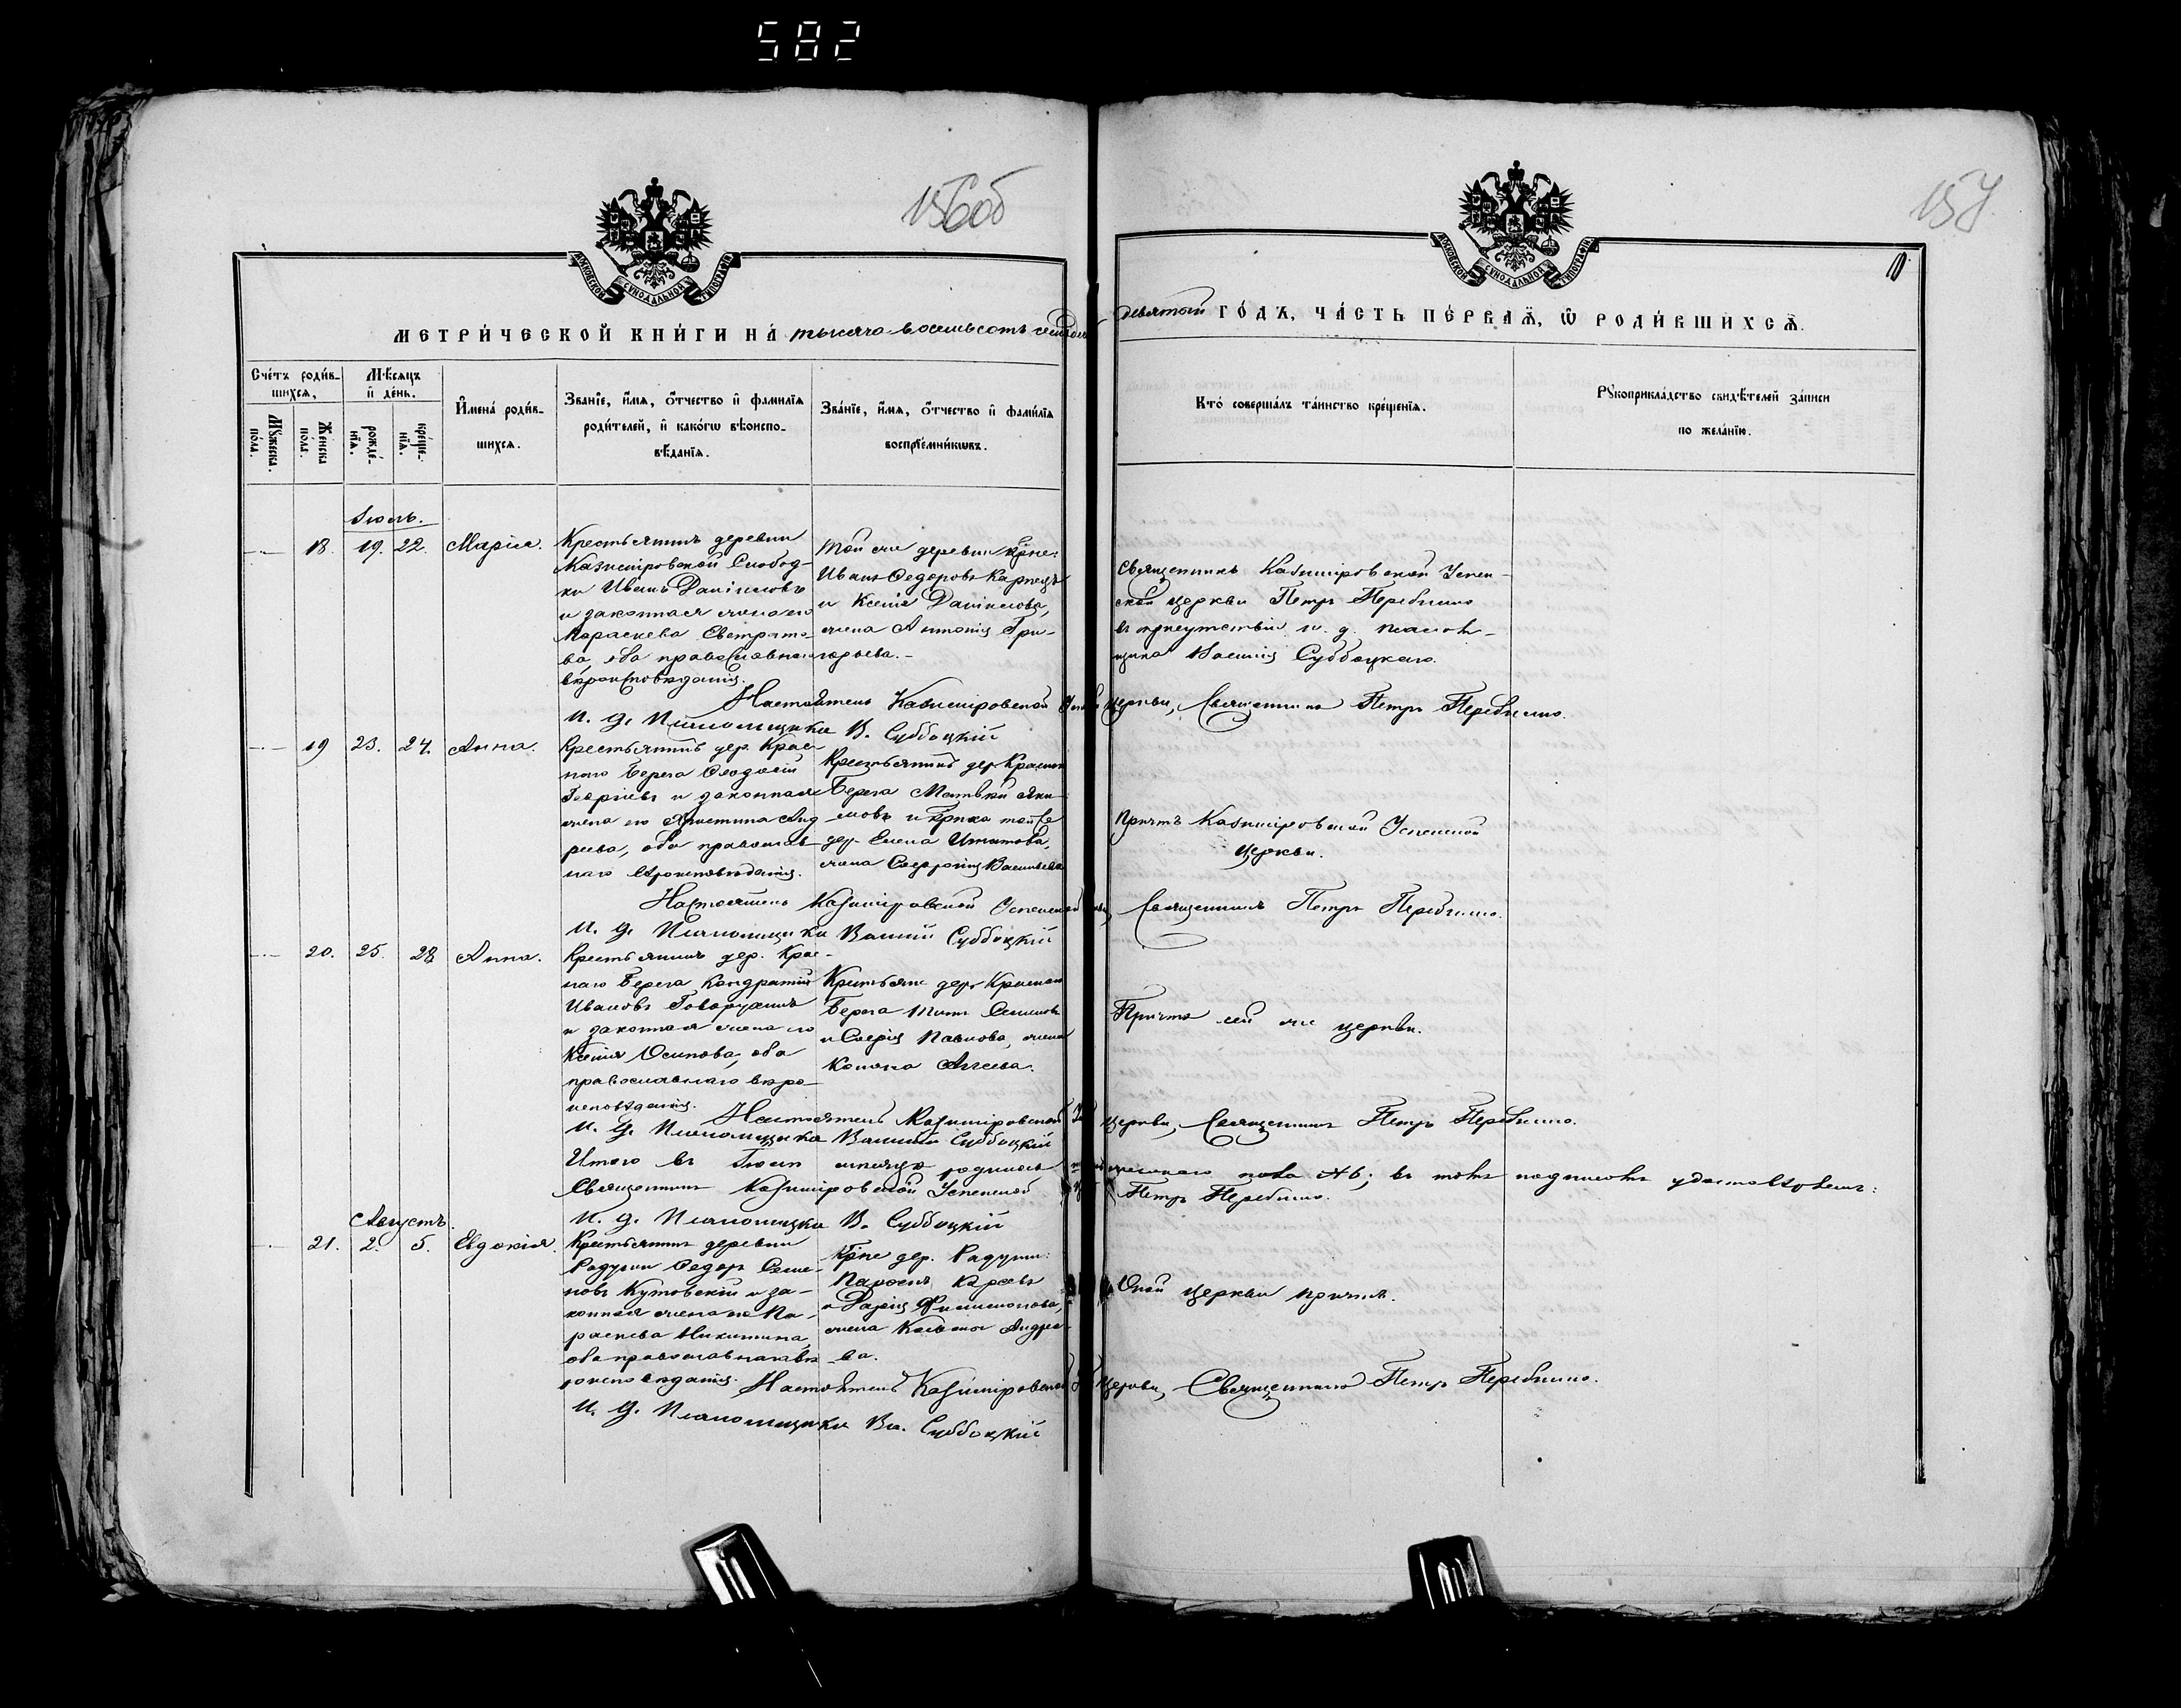 582
156об
157
МОСКОВСКОЙ СУНОДАЛЬНОЙ ТИПОГРАФІИ
МОСКОВСКОЙ СУНОДАЛЬНОЙ ТИПОГРАФІИ
МЕТРИ́ЧЕСКОЙ КНИ́ГИ НА́ тысяча восемьсот семьдесят
девятый ГО́ДЪ, ЧА́СТЬ ПЕ́РВАѦ, Ѡ РОДИ́ВШИХСѦ.
Сче́тъ роди́в-
шихсѧ,
Мѣ́сѧцъ
и҆ де́нь.
Мꙋ́жеска.
по́ла.
Же́нска
по́ла.
рожде́-
нїѧ.
креще́-
нїѧ.
И҆мена̀ роди́в-
шихсѧ.
Зва́нїе, и҆́мѧ, ѻ҆́тчество и҆ фами́лїѧ
роди́телей, и҆ како́гѡ вѣроиспо-
вѣ́данїѧ.
Зва́нїе, и҆́мѧ, ѻ҆́тчество и҆ фами́лїѧ
воспрїе́мникѡвъ.
Кто̀ соверша́лъ та́инство креще́нїѧ.
Рꙋкоприкла́дство свидѣ́телей за́писи
по жела́нїю.
Іюль.
18. 19. 22. Марія.
Крестьянинъ деревни
Казимировской Слобод-
ки Иванъ Даніиловъ
и законная жена его
Параскева Евстратіо-
ва, оба православнаго
вѣроисповѣданія.
Той же деревни крне:
Иванъ Ѳедоровъ Карпецъ
и Ксенія Даніилова,
жена Антонія Гри-
горьева.
Священникъ Казимировской Успен-
ской церкви Петръ
въ присутствіи и. д. псалом-
щика Василія Суббоцкаго.
Настоятель Казимировской церкви, Священникъ Петръ
И. д. Псаломщика В. Суббоцкій
19 23. 24. Анна.
Крестьянинъ дер. Крас-
наго Берега Ѳеодосій
Георгіевъ и законная
жена его Христина Анд
реева, оба православ-
наго вѣроисповѣданія.
Крестьянинъ дер. Краснаго
Берега Матвѣй Яки-
мовъ и крнка той же
дер. Елена Игнатова,
жена Софронія Васильева
Причтъ Казимировской Успенской
церкви.
Настоятель Казимировской Успенской Священникъ Петръ
И. д. Псаломщика Василій Суббоцкій
20. 25. 28 Анна.
Крестьянинъ дер. Крас-
наго Берега Кондратій
Ивановъ
и законная жена его
Ксенія Осипова, оба
православнаго вѣро-
исповѣданія.
Крестьяне дер. Краснаго
Берега Титъ Семеновъ
и Павлова, жена
Конона
Причтъ сей же церкви.
Настоятель Казимировской церкви, Священникъ Петръ
И. д. Псаломщика Василій Суббоцкій
Итого въ Іюлѣ мѣсяцѣ родилось женскаго пола въ томъ подписомъ удостовѣряемъ:
Священникъ Казимировской Успенской Петръ
И. д. Псаломщика В. Суббоцкій
Августъ.
21. 2. 5. Евдокія.
Крестьянинъ деревни
Радуши Ѳедоръ Семе-
новъ Кутовскій и за-
конная жена его Па-
раскева Никитина,
оба православнаго вѣ
роисповѣданія.
Крне дер. Радуши:
и Дарія Филимонова,
жена Андрее-
ва.
Оной церкви причтъ.
Настоятель Казимировской церкви, Священникъ Петръ
И. д. Псаломщика Ва. Суббоцкій